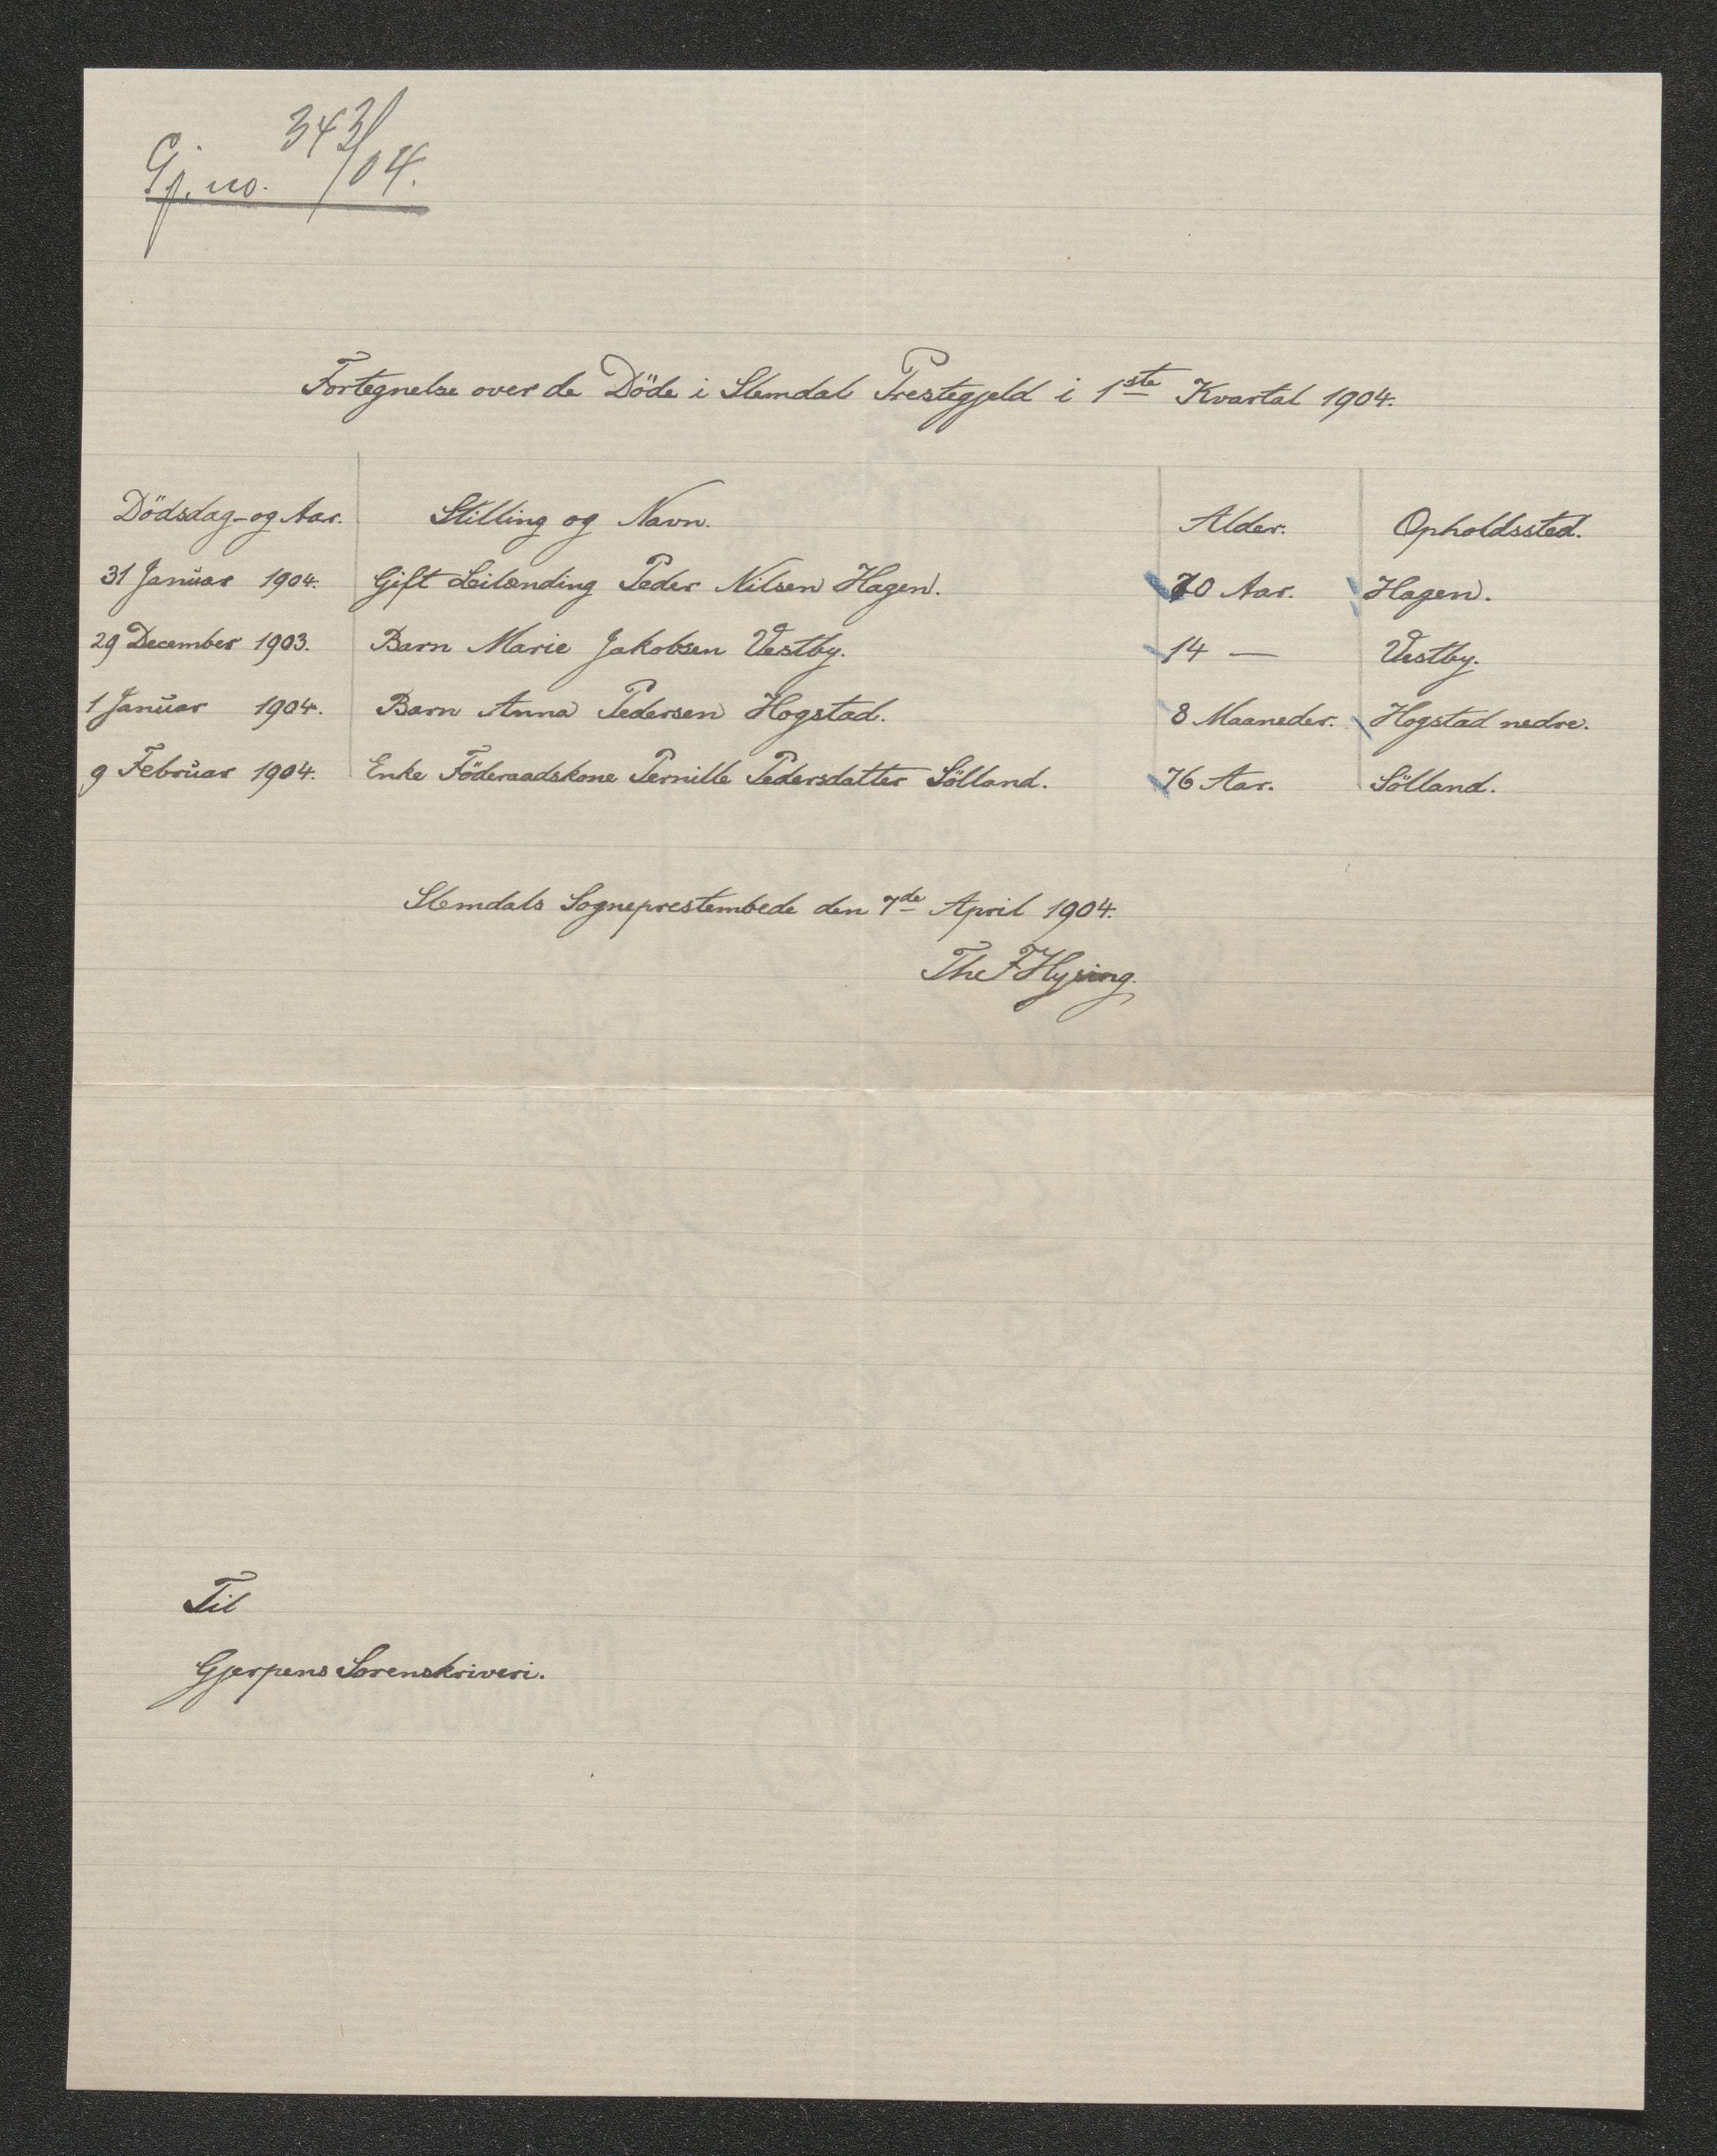 Gj. no. 343/04.
Fortegnelse over de Döde i Slemdal Prestegjeld i 1ste Kvartal 1904.
Dödsdag-og Aar. Stilling og Navn. Alder. Opholdssted.
31 Januar 1904. Gift Leilending Peder Nilsen Hagen. 70 Aar. Hagen.
29 December 1903. Barn Marie Jakobsen Vestby. 14 — Vestby.
1 Januar 1904. Barn Anna Pedersen Hogstad. 8 Maaneder. Hogstad nedre.
9 Februar 1904. Enke Föderaadskone Pernille Pedersdatter Sölland. 76 Aar. Sölland.
Slemdals Sogneprestembede den 7de April 1904.
The F Hysing.
Til
Gjerpens Sorenskriveri.